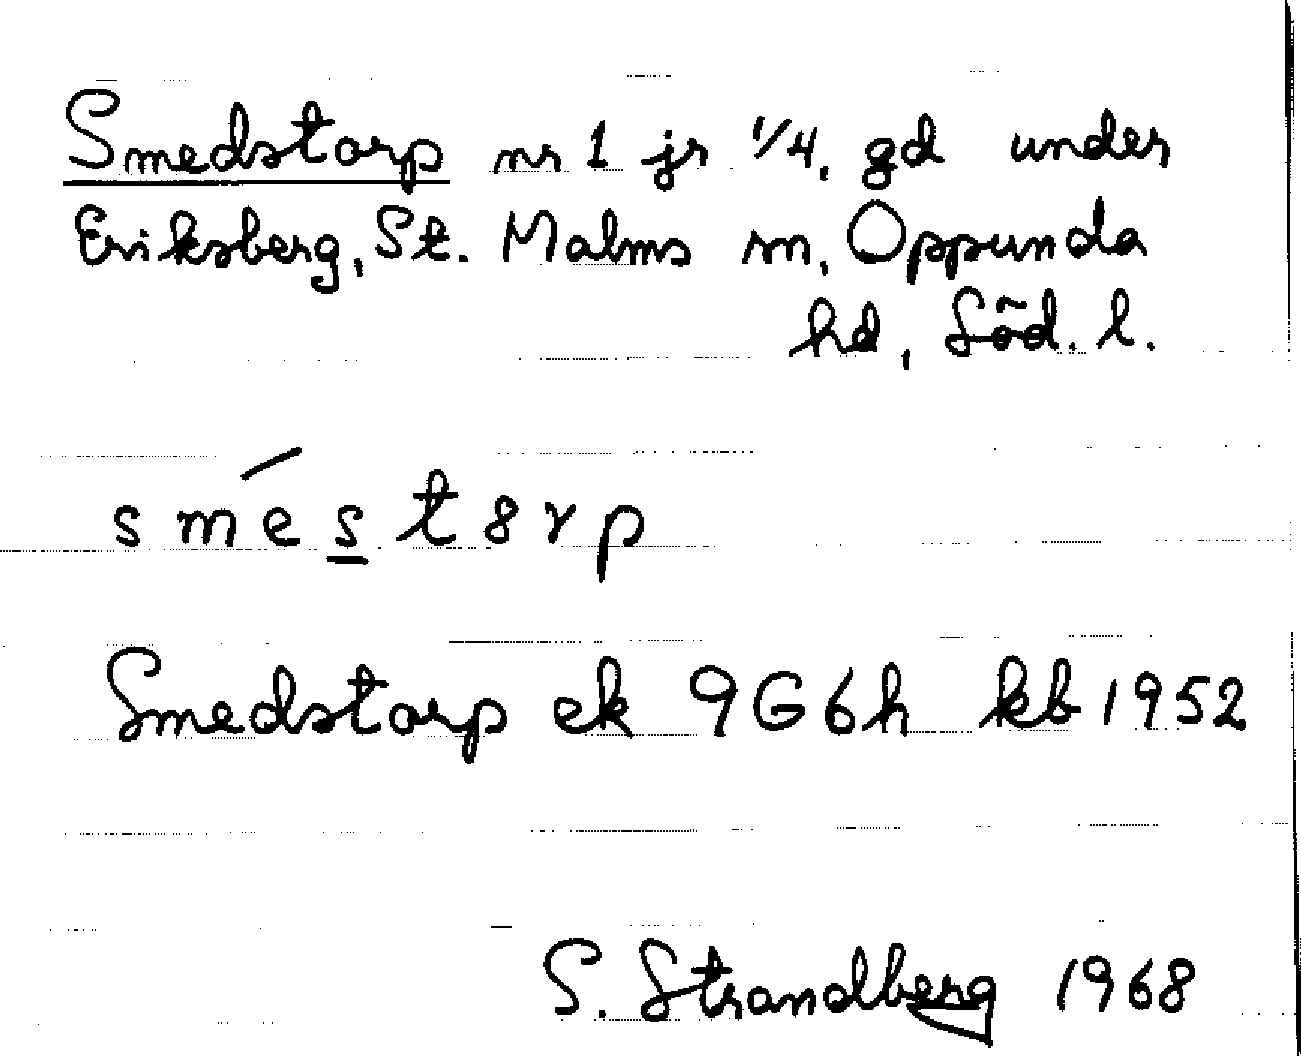 Smedstorp nr 1 jr 1/4, gd under
Eriksberg, St. Malms sn, Oppunda
hd, Söd. l.
smés̲t8rp
Smedstorp ek 9G6h kb 1952
S. Strandberg 1968